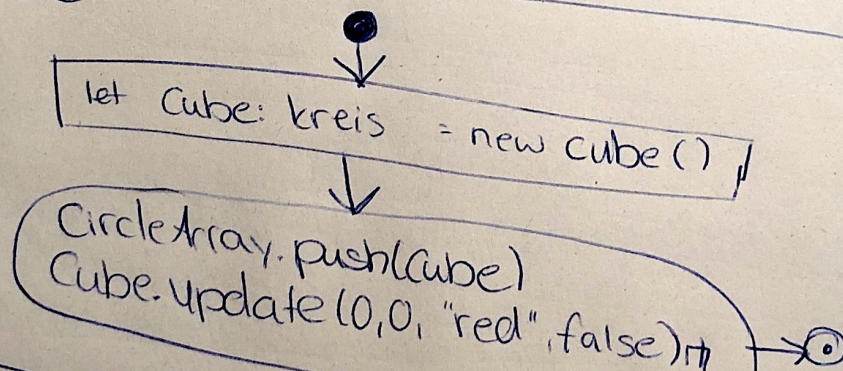 let Cube: kreis = new cube()
CircleArray.push(Cube)
Cube.update(0,0, "red", false)